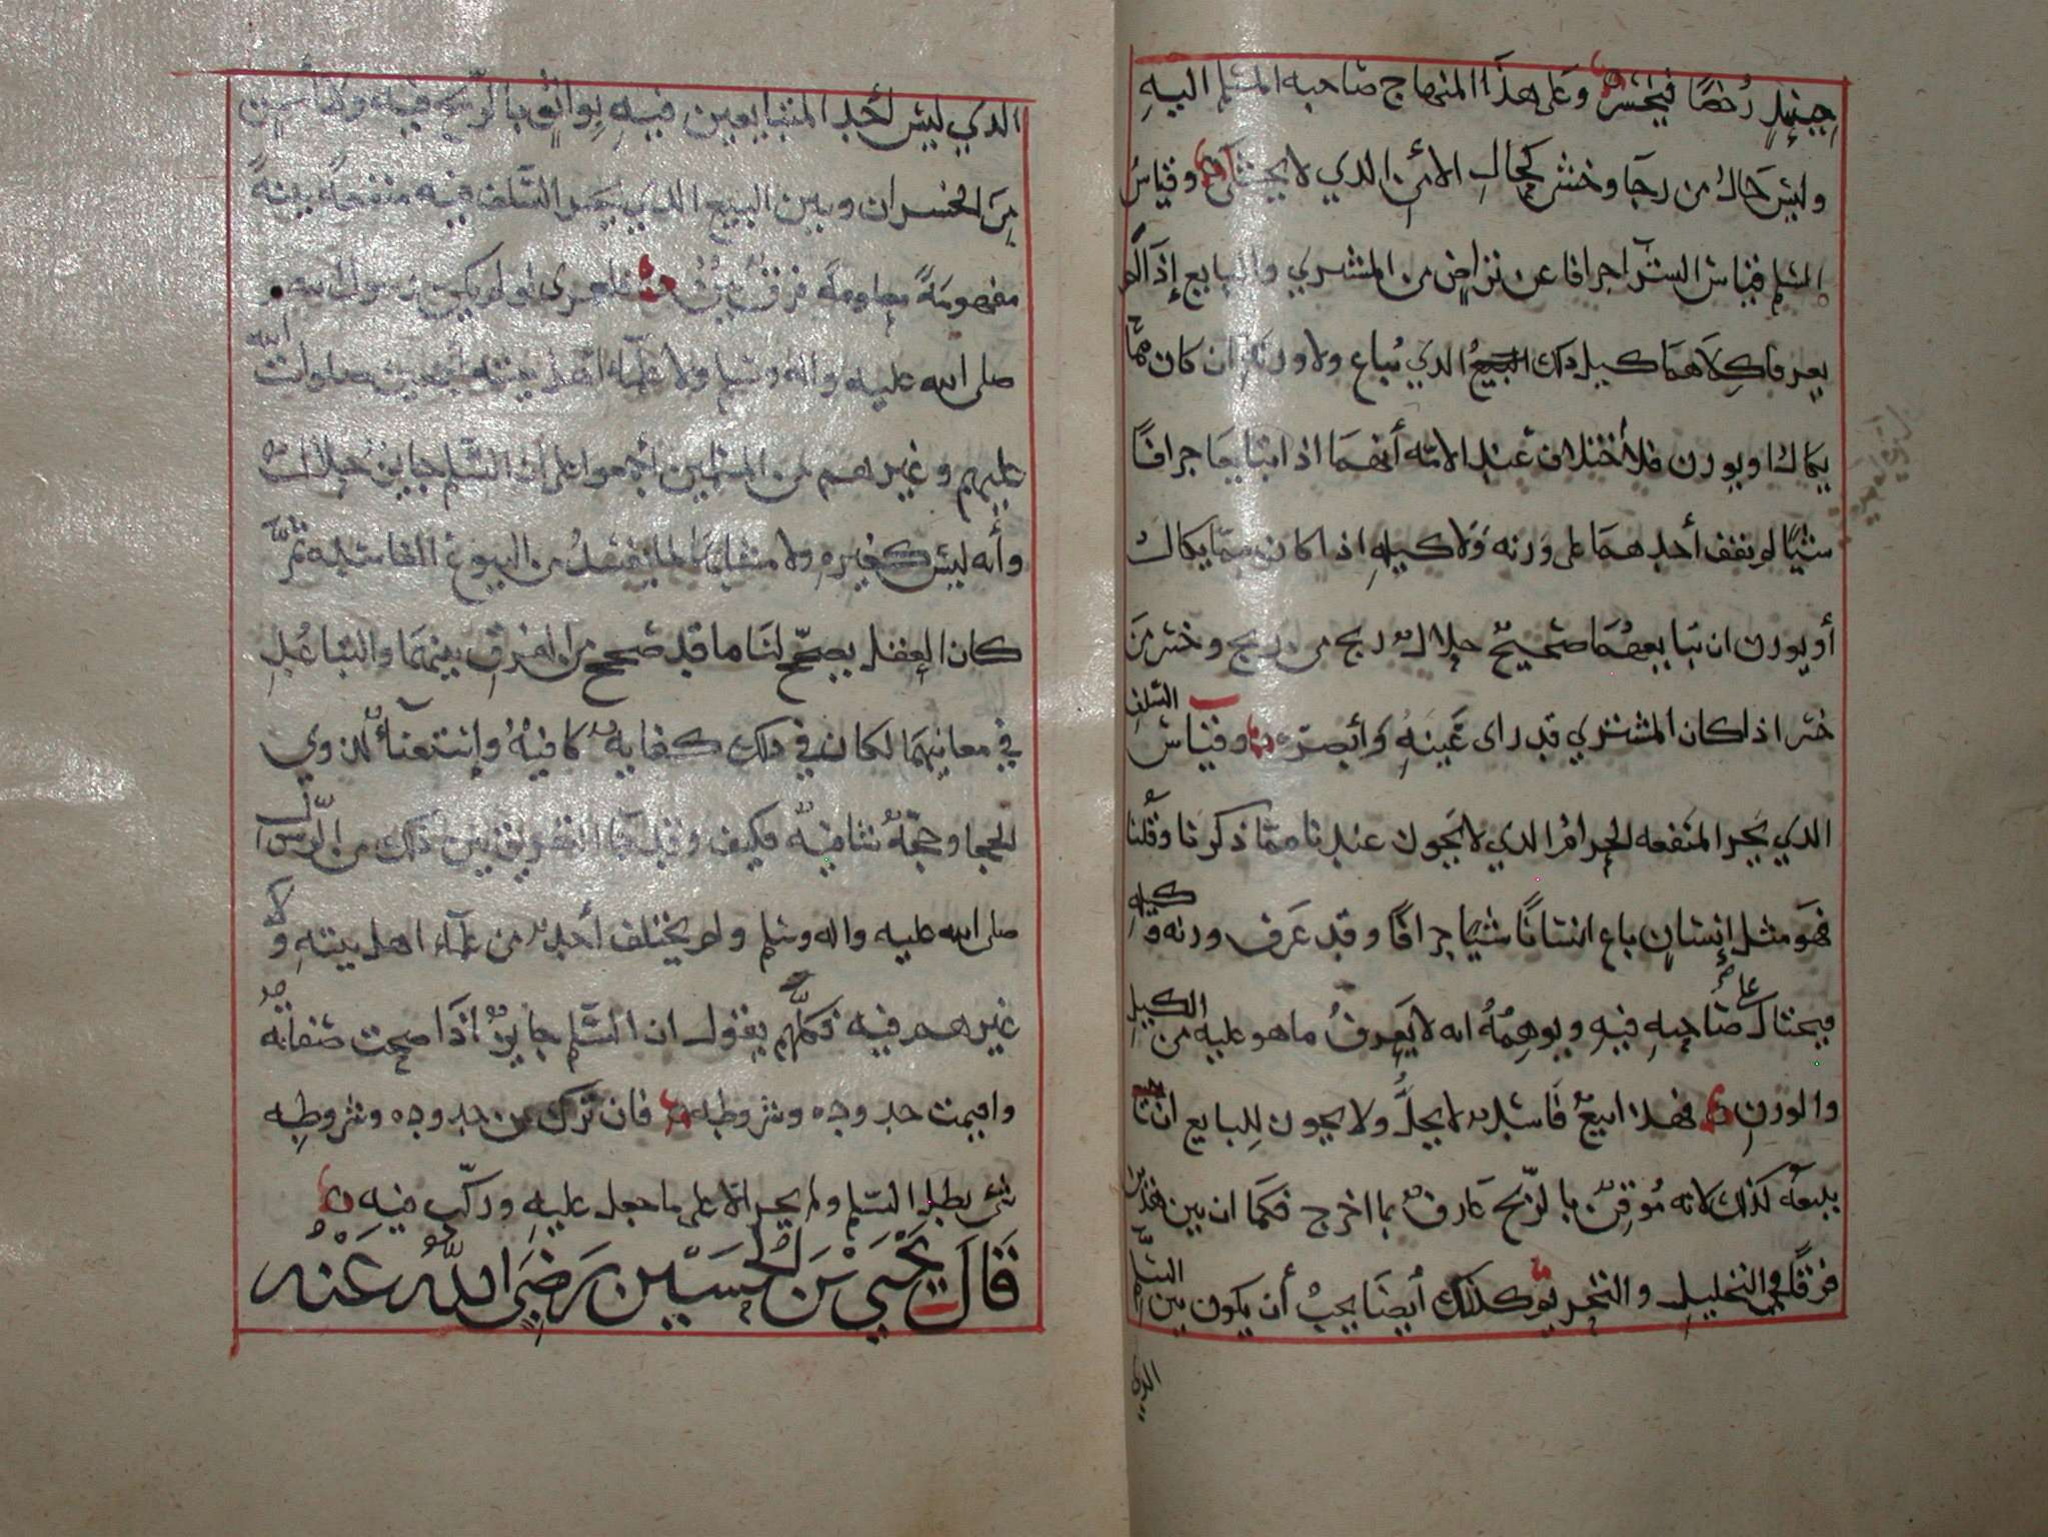 حينئذٍ رُخصًا فيخسر وعلى هذا المنهاج صاحبه المسلم اليهِ
وليس حال من رجا وخشي كحالِ الأمن الذي لا يخشا وقياسُ
السلم قياس الشرآ جرافا عن تراضٍ من المشتري والبايع إذا لم
يعرفا كِلاهما كيل ذلك البيع الذي يُباع ولا وزنه ان كان مما
يكال او يوزن فلا أختلاف عند الامه أنهما اذا ابتايعا جرافًا
شيًا لم يقف أحدهما على وزنه ولا كيلهِ اذا كان مِمّا يكال
أو يوزن ان تبايعهُما صحيحٌ حلالٌ ربح من ربح وخسر مَن
خسر اذا كان المشتري قد راى عَينهُ وأبصره وقياس السلفِ
الذي يجر المنفعه الحرامُ الذي لا يجوز عندنا ممّا ذكرنا وقُلنا
فهو مثل إنسانٍ باع انسانًا شيًا جرافًا وقد عَرف وزنه وكيله
فيحتال على صاحبهِ فيهِ ويوهِمُهُ انه لا يَعرفُ ما هو عليه من الكيلِ
والوزنِ فهذا بيعٌ فاسدٌ لا يحلُّ ولا يجوز لِلبايع ان
بيعه كذلك لانه مُوقنٌ بالرّبح عارفٌ بما اخرج فكما ان بين هذين
فرقًا في التحليلِ والتحريم كذلك أيضا يجبُ أن يكون بين السلم
الذي
الذي ليس لأحد المتبايعين فيهِ بِواثقٍ بالربح فيه ولا أمن
مِنَ الخسران وبين البيع الذي يجر السلف فيه منفعةً بينةً
مفهومةً معلومةً فرقٌ فلعمري لو لم يكن رسول الله
صلى الله عليه واله وسلم ولا علمآء اهل بيته أجمعين صلوات الله
عليهم وغيرهم من المسلمين أجمعوا على أن السّلم جايزٌ حلالٌ
وأنه ليس كغيرهِ ولا مشابهًا لما يفسدُ من البيوع الفاسده ثُمَّ
كان العقل يصحّح لنا ما قد صحح من الفرقِ بينهما والتباعُدِ
في معانيهما لكان في ذلك كفايهٌ كافيهٌ وإستغنآءٌ لذوي
الحجا وحجّهٌ شافيهٌ فكيف وقد جا التفريق بين ذلك من الرّسول
صلى الله عليه واله وسلم ولم يختلف أحدٌ من علمآء اهل بيتهِ ولا
غيرهم فيه فكلّهم يقول ان السّلم جايزٌ اذا صحت صفاته
واقيمت حدوده وشروطه فان ترك من حدوده وشروطِه
شي بطل السّلم ولم يجر الا على ما جعل عليهِ وركّب فيه
قَالَ يَحْيَى بْنَ الْحُسَيْنِ رَضِيَ اللهُ عَنْهُ